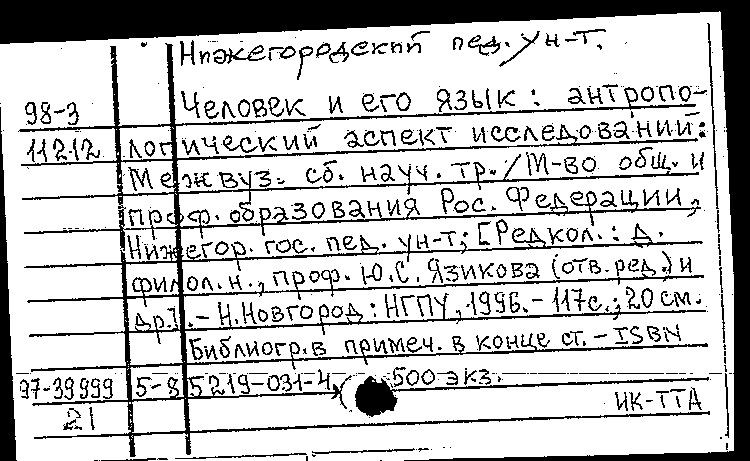 Нижегородский пед. ун-т.
98-3 Человек и его язык : антропо-
11212 логический аспект исследований:
Межвуз. сб. науч. тр. / М-во общ. и
проф. образования Рос. Федерации,
Нижегор. гос. пед. ун-т; [Редкол. : д.
филол. н., проф. Ю.С. Язикова (отв. ред.) и
др.]. - Н. Новгород : НГПУ, 1996. - 117 с.; 20 см.
Библиогр. в примеч. в конце ст. - ISBN
97-39999 5-85219-031-4 500 экз.
21 ИК-ТТА